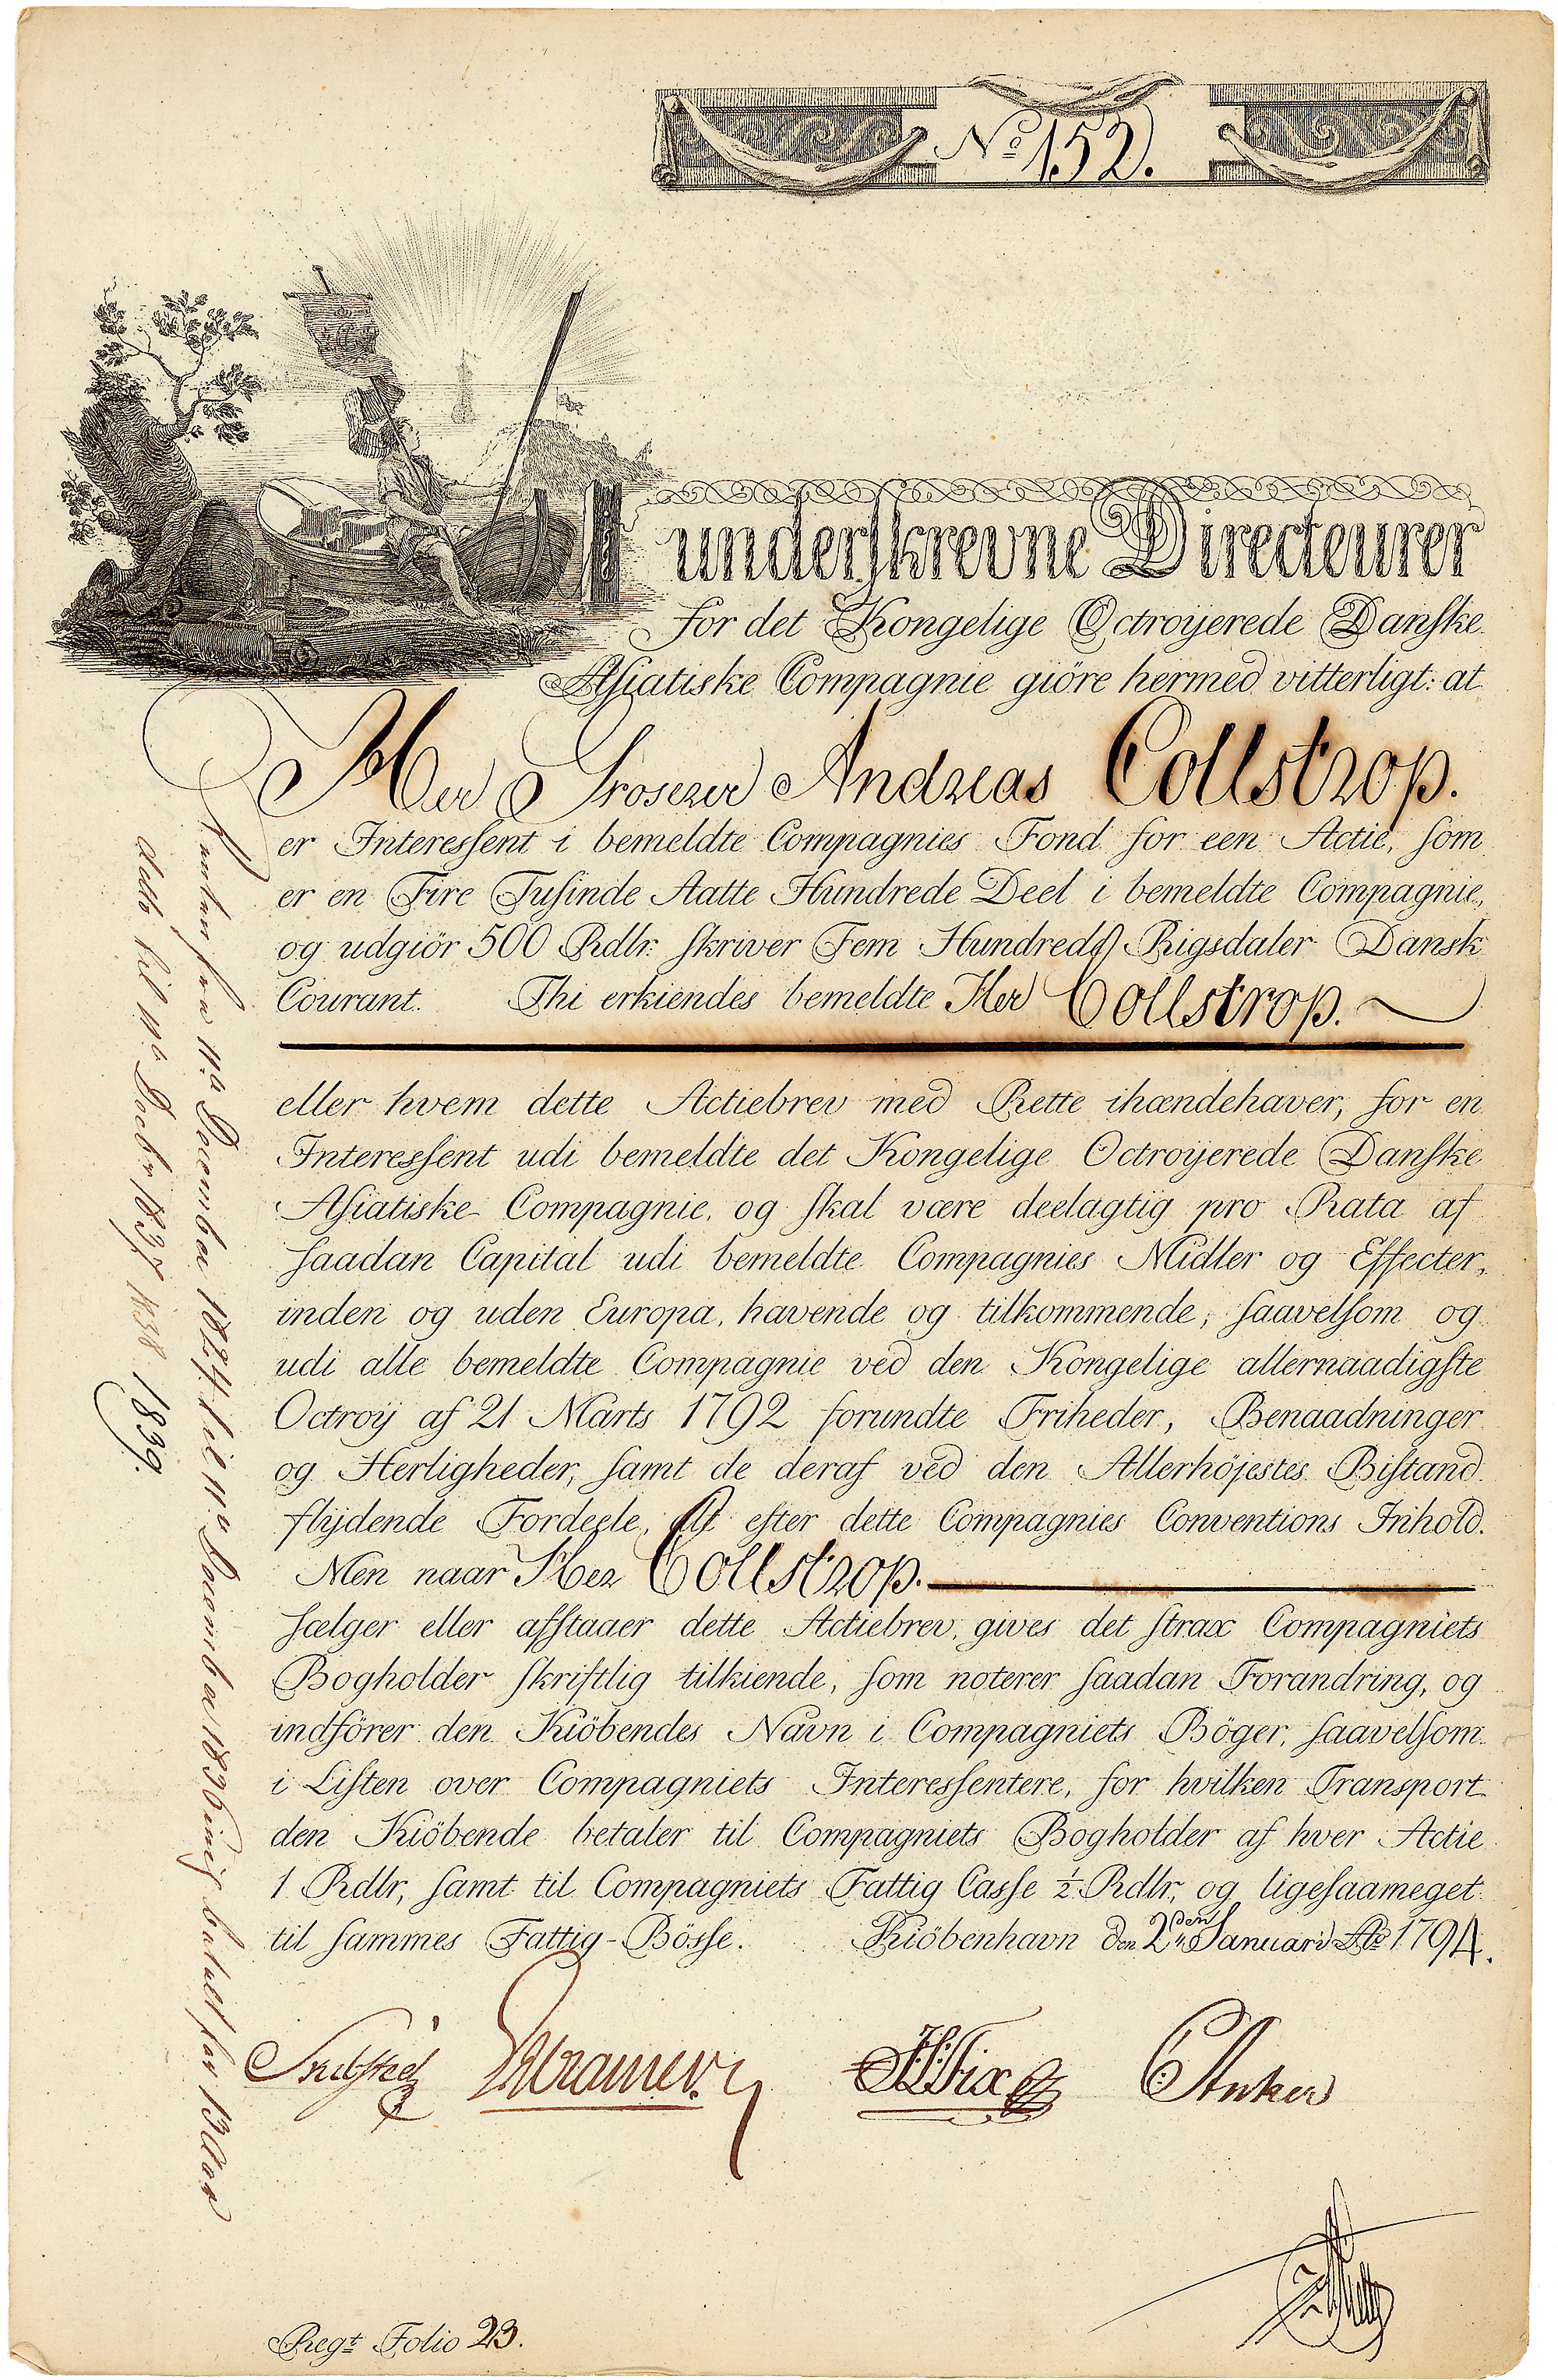 No 152.
underskrevne Directeurer
for det Kongelige Octroyerede Danske
Asiatiske Compagnie giöre hermed vitterligt: at
Her Groserer Andreas Collstrop.
er Interessent i bemeldte Compagnies Fond for een Actie, som
er en Fire Tusinde Aatte Hundrede Deel i bemeldte Compagnie,
og udgiör 500 Rdlr: skriver Fem Hundrede Rigsdaler Dansk
Courant. Thi erkiendes bemeldte Her Collstrop.
eller hvem dette Actiebrev med Rette ihændehaver, for en
Interessent udi bemeldte det Kongelige Octroyerede Danske
Asiatiske Compagnie, og skal være deelagtig pro Rata af
saadan Capital udi bemeldte Compagnies Midler og Effecter,
inden og uden Europa, havende og tilkommende, saavelsom og
udi alle bemeldte Compagnie ved den Kongelige allernaadigste
Octroÿ af 21 Marts 1792 forundte Friheder, Benaadninger
og Herligheder, samt de deraf ved den Allerhöjestes Bistand
flÿdende Fordeele, Alt efter dette Compagnies Conventions Inhold.
Men naar Her Collstrop.
sælger eller afstaaer dette Actiebrev, gives det strax Compagniets
Bogholder skriftlig tilkiende, som noterer saadan Forandring, og
indförer den Kiöbendes Navn i Compagniets Böger, saavelsom
i Listen over Compagniets Interessentere, for hvilken Transport
den Kiöbende betaler til Compagniets Bogholder af hver Actie
1 Rdlr, samt til Compagniets Fattig Casse ½ Rdlr, og ligesaameget
til sammes Fattig-Bösse. Kiöbenhavn den 2den Januarii Ao 1794.
Renten fra 11te December 1824 til 11te December 1836 betalt for 13 Aar
dito til 11te Decbr 1837 1838 1839.
HFix CAnker
Regt Folio 23.